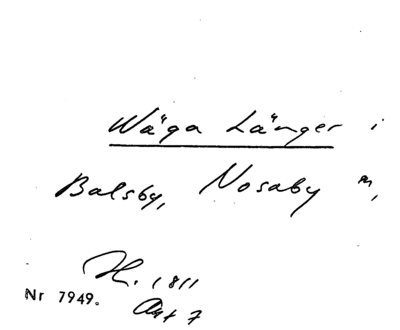 Wäga Länger i
Balsby, Nosaby
H. 1811
Nr 7949.
Art 7